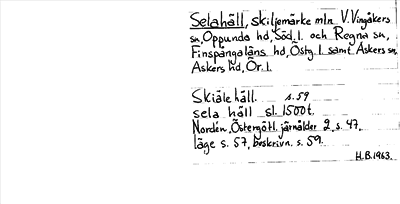 Selahäll, skiljemärke mln V. Vingåkers
sn, Oppunda hd, Söd. l. och Regna sn,
Finspångaläns hd, Östg. l. samt Askers sn,
Askers hd, Ör. l.
Skiäle häll. s. 59
sela häll sl. 1500t.
Nordén, Östergötl. järnålder 2, s. 47,
läge s. 57, beskrivn. s. 59.
H.B. 1963.